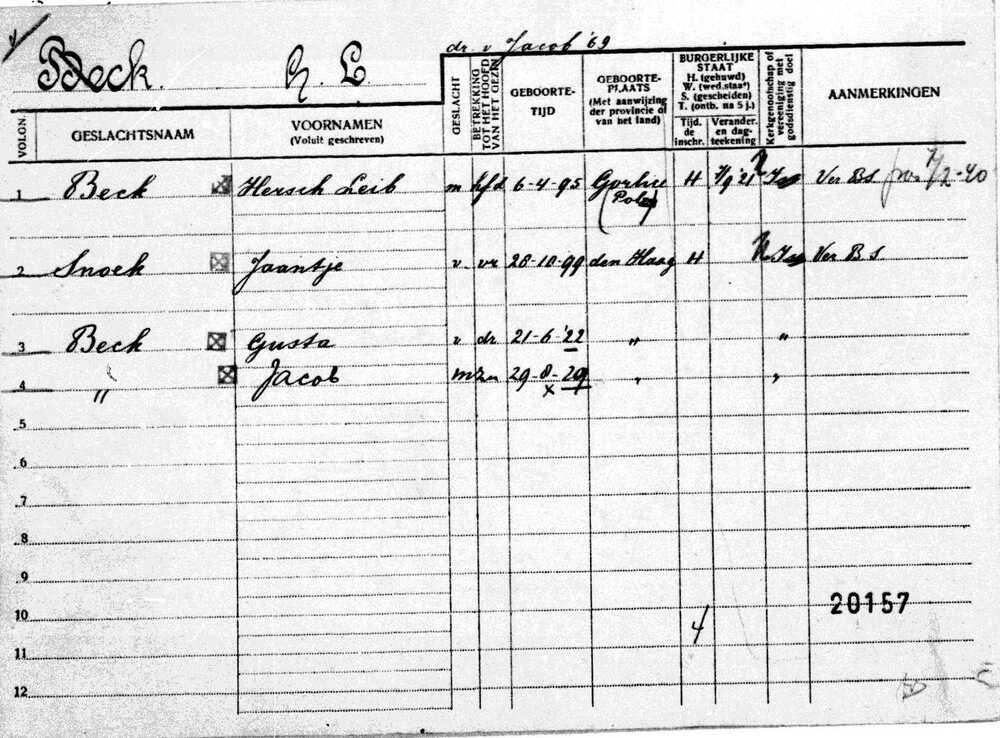 dr. v Jacob '69
Beck. H. L.
VOLGN.
GESLACHTSNAAM
VOORNAMEN
(Voluit geschreven)
GESLACHT
BETREKKING
TOT HET HOOFD
VAN HET GEZIN
GEBOORTE-
TIJD
GEBOORTE-
PLAATS
(Met aanwijzing
der provincie of
van het land)
BURGERLIJKE
STAAT
H. (gehuwd)
W. (wed.staat)
S. (gescheiden)
T. (ontb. na 5 j.)
Tijd.
de
inschr.
Verander.
en dag-
teekening
Kerkgenootschap of
vereeniging met
godsdienstig doel
AANMERKINGEN
1 Beck Hersch Leib m hfd 6-4-95 Gorlice H 7/9 '21 Isr Ver B.S. 7/2-40
(Polen)
2 Snoek Jaantje v. vr 28-10-99 den Haag H N. Isr Ver B.S.
3 Beck Gusta v dr. 21-6 '22 " "
4 " Jacob m zn 29-8-29 " "
x
5
6
7
8
9
10 20157
4
11
12